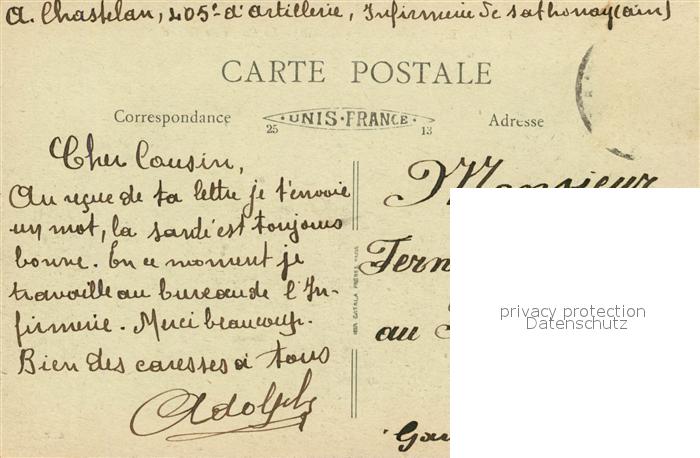 A. Chastelan, 405e d'artillerie, Infirmerie de Sathonay (ain)
CARTE POSTALE
Correspondance
UNIS-FRANCE
25
13
Adresse
Cher Cousin,
Au reçue de ta lettre je t'envoie
un mot, la santé est toujours
bonne. En ce moment je
travaille au bureau de l'In-
firmerie. Merci beaucoup.
Bien des caresses à tous
Adolphe
Monsieur
Fern
au
privacy protection
Datenschutz